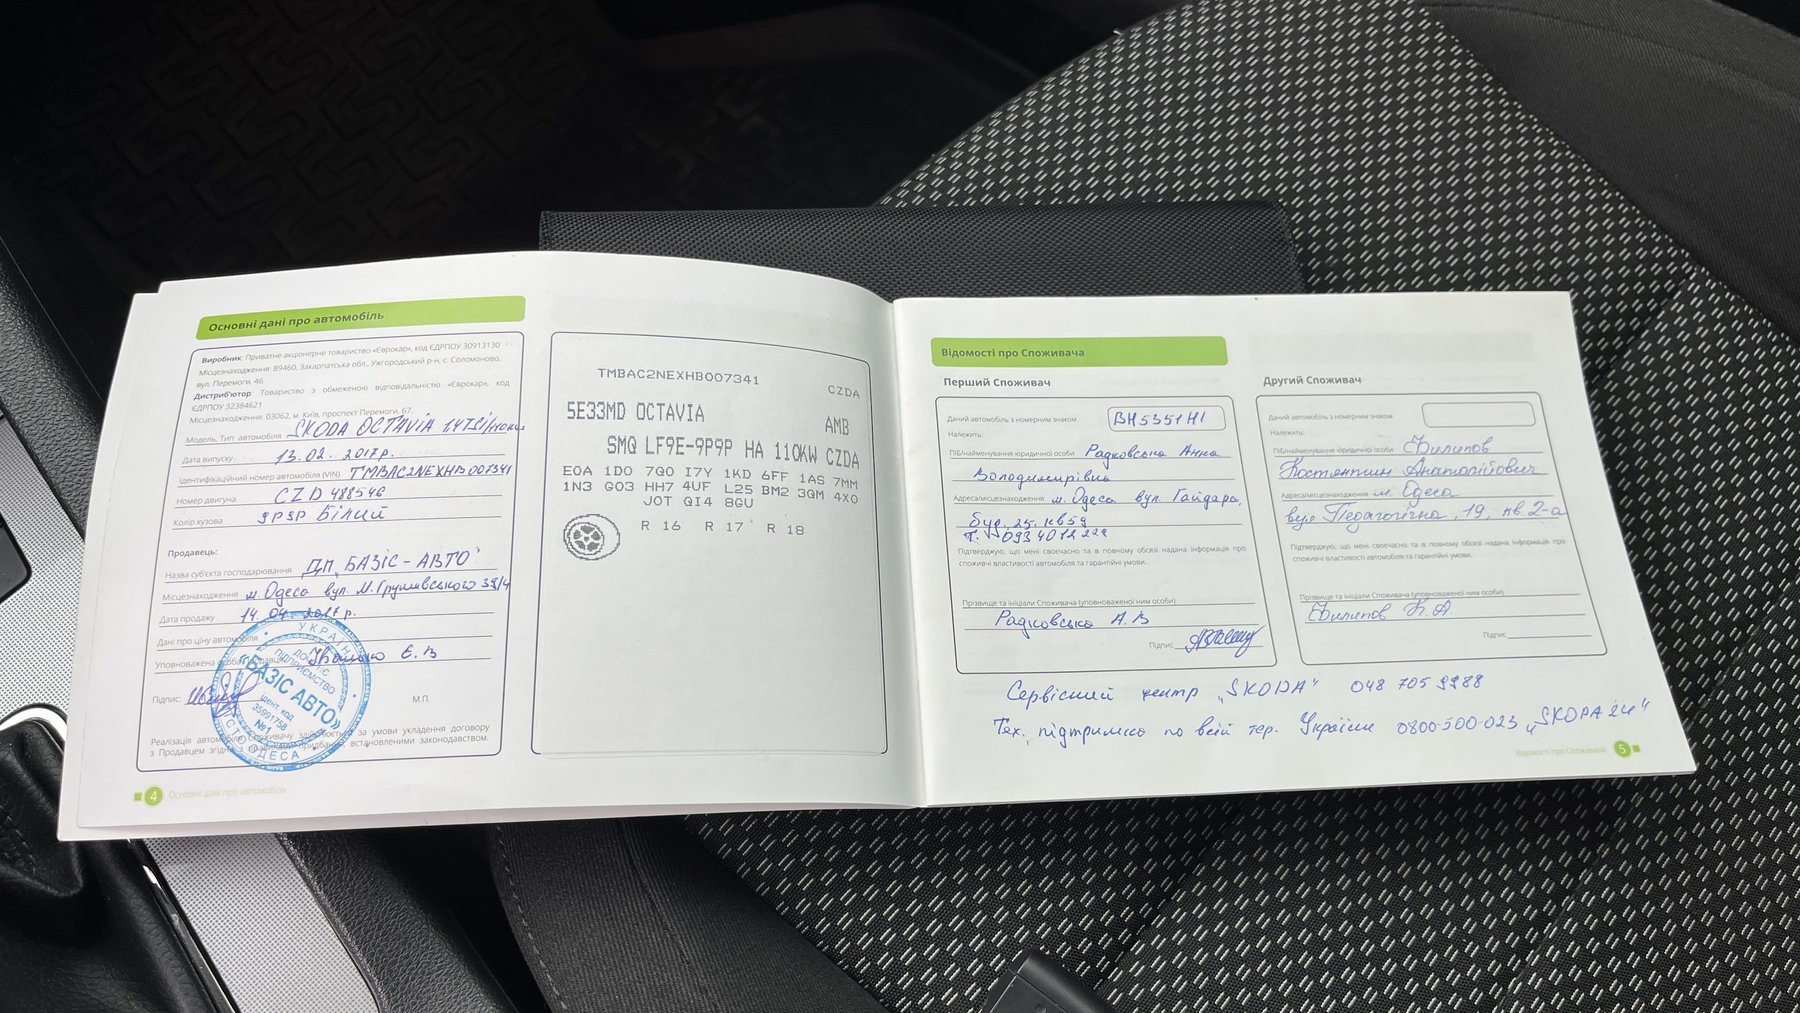 Основні дані про автомобіль
Виробник: Приватне акціонерне товариство «Єврокар», код ЄДРПОУ 30913130
Місцезнаходження: 89460, Закарпатська обл., Ужгородський р-н, с. Соломоново,
вул. Перемоги, 46.
Дистриб'ютор: Товариство з обмеженою відповідальністю «Єврокар», код
ЄДРПОУ 32384621
Місцезнаходження: 03062, м. Київ, проспект Перемоги, 67.
Модель, Тип автомобіля SKODA OCTAVIA 1,4TSI/110кw
Дата випуску 13.02.2017р.
Ідентифікаційний номер автомобіля (VIN) TMBAC2NEXHB007341
Номер двигуна CZD 488546
Колір кузова 9P9P Білий
Продавець:
Назва суб'єкта господарювання ДП „БАЗІС-АВТО"
Місцезнаходження м Одеса вул. М.Грушевського 39/4
Дата продажу 14.04.2017р.
Дані про ціну автомобіля
Уповноважена особа Є. В
Підпис:
М.П.
УКРАЇНА
ДОЧІРНЄ
ПІДПРИЄМСТВО
«БАЗІС АВТО»
Ідент. код
35991758
№1
МІСТО ОДЕСА
Реалізація автомобіля Споживачу здійснюється за умови укладення договору
з Продавцем згідно з правилами придбання, встановленими законодавством.
4 Основні дані про автомобіль
TMBAC2NEXHB007341
CZDA
5E33MD OCTAVIA AMB
SMQ LF9E-9P9P HA 110KW CZDA
E0A 1D0 7G0 I7Y 1KD 6FF 1AS 7MM
1N3 G03 HH7 4UF L25 BM2 3GM 4X0
J0T QI4 8GU
R 16 R 17 R 18
Відомості про Споживача
Перший Споживач
Даний автомобіль з номерним знаком BH5351HI
Належить:
ПІБ/найменування юридичної особи Радковська Анна
Володимирівна
Адреса/місцезнаходження м. Одеса вул. Гайдара,
буд. 25. кв 59
т. 0934012229
Підтверджую, що мені своєчасно та в повному обсязі надана інформація про
споживчі властивості автомобіля та гарантійні умови.
Прізвище та ініціали Споживача (уповноваженої ним особи)
Радковська А. В
Підпис
Другий Споживач
Даний автомобіль з номерним знаком
Належить:
ПІБ/найменування юридичної особи Филипов
Костянтин Анатолійович
Адреса/місцезнаходження м. Одеса
вул Педагогічна, 19, кв. 2-а
Підтверджую, що мені своєчасно та в повному обсязі надана інформація про
споживчі властивості автомобіля та гарантійні умови.
Прізвище та ініціали Споживача (уповноваженої ним особи)
Филипов К. А.
Підпис
Сервісний центр „SKODA" 048 705 9988
Тех. підтримка по всій тер. України 0800-500-023 „SKODA 24"
Відомості про Споживача 5